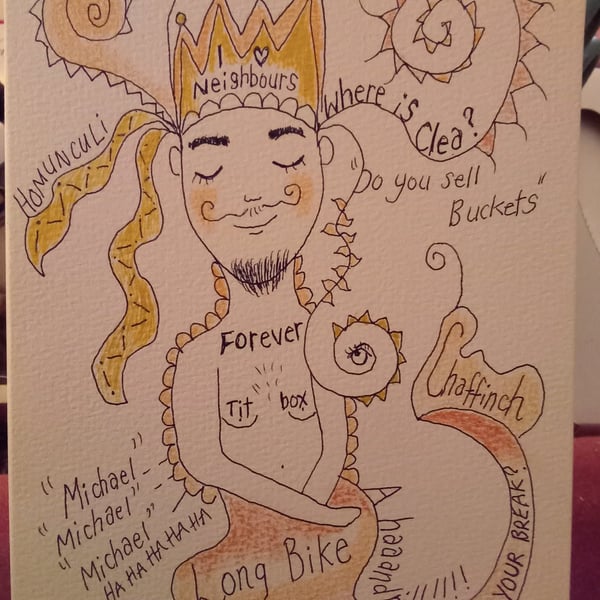 I ♥
Neighbours
Where is
Clea?
HOMUNCULi
"Do you sell
Buckets"
Forever
Tit box
Chaffinch
"Michael"
"Michael"
"Michael"
HA HA HA HA HA HA
Long Bike
YOUR BREAK?